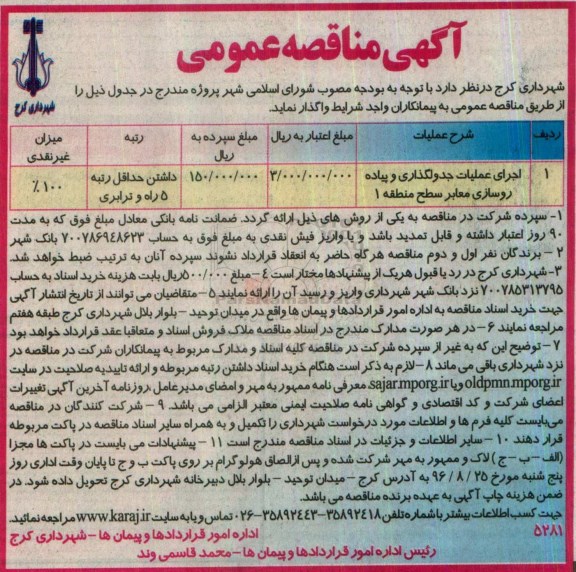 آگهی مناقصه عمومی
شهرداری کرج
شهرداری کرج درنظر دارد با توجه به بودجه مصوب شورای اسلامی شهر پروژه مندرج در جدول ذیل را
از طریق مناقصه عمومی به پیمانکاران واجد شرایط واگذار نماید.
ردیف	شرح عملیات	مبلغ اعتبار به ریال	مبلغ سپرده به ریال	رتبه	میزان غیرنقدی
۱	اجرای عملیات جدولگذاری و پیاده روسازی معابر سطح منطقه ۱	۳/۰۰۰/۰۰۰/۰۰۰	۱۵۰/۰۰۰/۰۰۰	داشتن حداقل رتبه ۵ راه و ترابری	۱۰۰٪
۱- سپرده شرکت در مناقصه به یکی از روش های ذیل ارائه گردد. ضمانت نامه بانکی معادل مبلغ فوق که به مدت
۹۰ روز اعتبار داشته و قابل تمدید باشد و یا واریز فیش نقدی به مبلغ فوق به حساب ۷۰۰۷۸۶۹۴۸۶۲۳ بانک شهر
۲- برندگان نفر اول و دوم مناقصه هرگاه حاضر به انعقاد قرارداد نشوند سپرده آنان به ترتیب ضبط خواهد شد.
۳- شهرداری کرج در رد یا قبول هریک از پیشنهادها مختار است ۴- مبلغ ۵۰۰/۰۰۰ ریال بابت هزینه خرید اسناد به حساب
۷۰۰۷۸۵۳۱۳۷۹۵ نزد بانک شهر شهرداری واریز و رسید آن را ارائه نمایند ۵- متقاضیان می توانند از تاریخ انتشار آگهی
جهت خرید اسناد مناقصه به اداره امور قراردادها و پیمان ها واقع در میدان توحید - بلوار بلال شهرداری کرج طبقه هفتم
مراجعه نمایند ۶- در هر صورت مدارک مندرج در اسناد مناقصه ملاک فروش اسناد و متعاقبا عقد قرارداد خواهد بود
۷- توضیح این که به غیر از سپرده شرکت در مناقصه کلیه اسناد و مدارک مربوط به پیمانکاران شرکت در مناقصه در
نزد شهرداری باقی می ماند ۸- لازم به ذکر است هنگام خرید اسناد داشتن رتبه مربوطه و ارائه تاییدیه صلاحیت در سایت
oldpmn.mporg.ir ویا sajar.mporg.ir، معرفی نامه ممهور به مهر و امضای مدیرعامل ،روزنامه آخرین آگهی تغییرات
اعضای شرکت و کد اقتصادی و گواهی نامه صلاحیت ایمنی معتبر الزامی می باشد. ۹- شرکت کنندگان در مناقصه
می‌بایست کلیه فرم ها و اطلاعات مورد درخواست شهرداری را تکمیل و به همراه سایر اسناد مناقصه در پاکت مربوطه
قرار دهند ۱۰- سایر اطلاعات و جزئیات در اسناد مناقصه مندرج است ۱۱- پیشنهادات می بایست در پاکت ها مجزا
(الف - ب - ج) لاک و ممهور به مهر شرکت شده و پس ازالصاق هولوگرام بر روی پاکت ب و ج تا پایان وقت اداری روز
پنج شنبه مورخ ۹۶/۸/۲۵ به آدرس کرج - میدان توحید - بلوار بلال دبیرخانه شهرداری کرج تحویل داده شود. در
ضمن هزینه چاپ آگهی به عهده برنده مناقصه می باشد.
جهت کسب اطلاعات بیشتر با شماره تلفن ۳۵۸۹۲۴۱۸-۳۵۸۹۲۴۴۳-۰۲۶ تماس و یا به سایت www.karaj.ir مراجعه نمائید.
۵۲۸۱
اداره امور قراردادها و پیمان ها - شهرداری کرج
رئیس اداره امور قراردادها و پیمان ها - محمد قاسمی وند